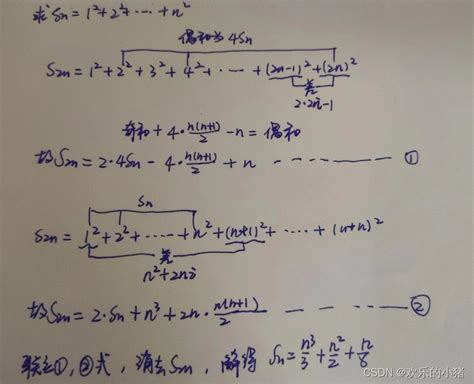 求Sn=1²+2²+⋯+n²
偶和为4Sn
S2n=1²+2²+3²+4²+⋯+(2n-1)²+(2n)²
差
2·2n-1
奇和+4·n(n+1)/2-n=偶和
故S2n=2·4Sn-4·n(n+1)/2+n ------- ①
Sn
S2n=1²+2²+⋯+n²+(n+1)²+⋯+(n+n)²
差
n²+2ni
故S2n=2·Sn+n³+2n·n(n+1)/2 ------- ②
联立①,②式,消去S2n,解得 Sn=n³/3+n²/2+n/6
CSDN @欢乐的小猪